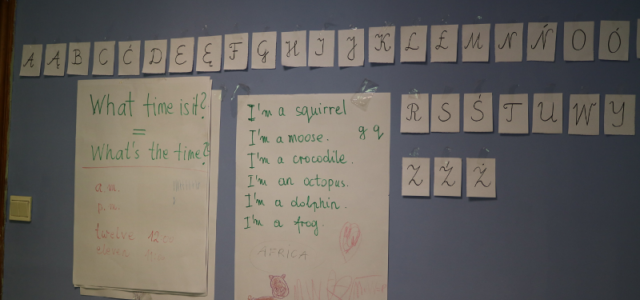 A Ą B C Ć D E Ę F G H I J K L Ł M N Ń O Ó
R S Ś T U W Y
Z Ź Ż
What time is it?
=
What's the time?
a.m.
p.m.
twelve 12:00
I'm a squirrel
I'm a moose.
g q
I'm a crocodile.
I'm an octopus.
I'm a dolphin.
I'm a frog.
AFRICA